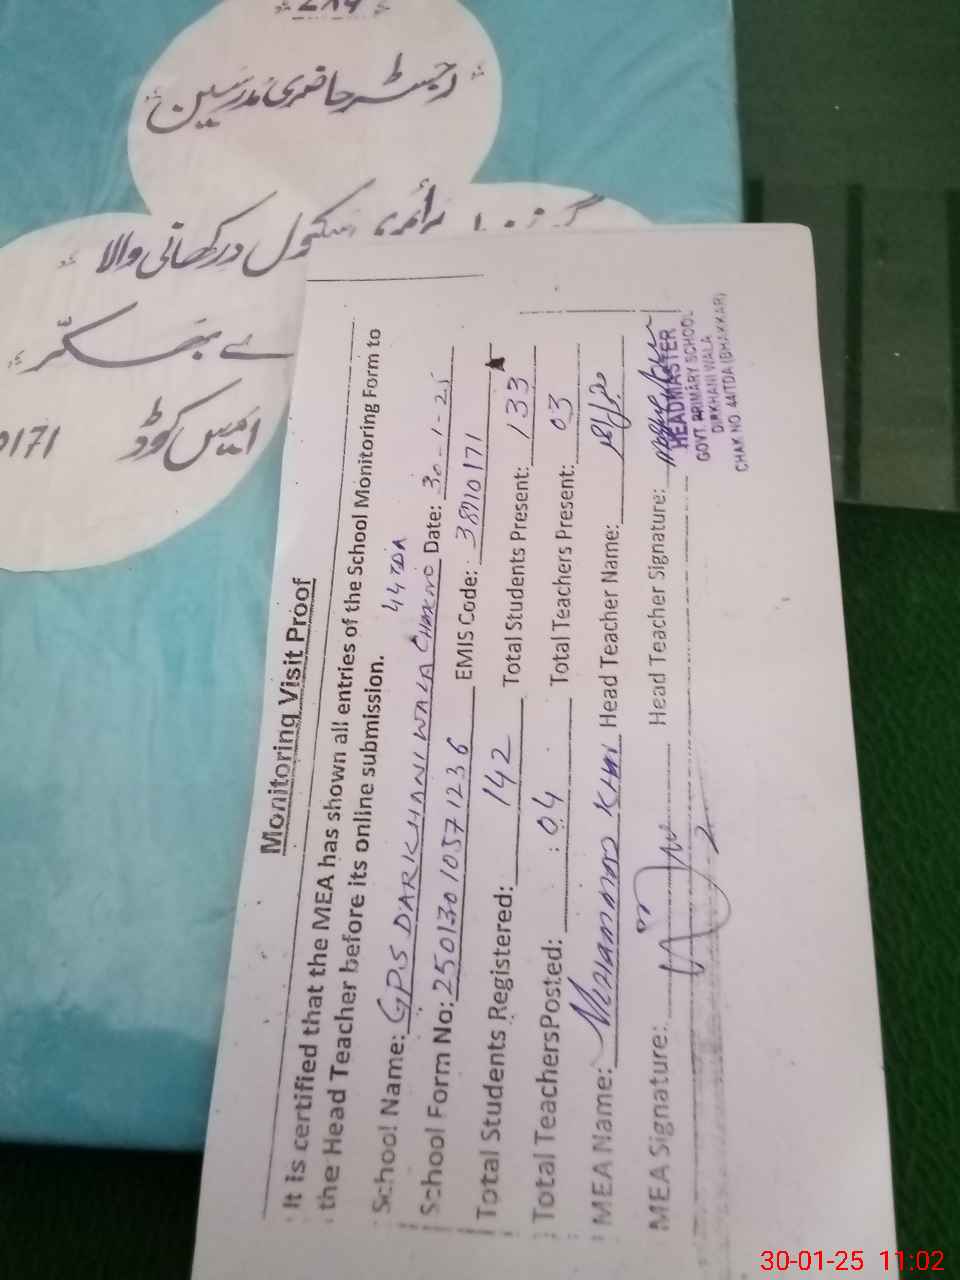 رجسٹر حاضری مدرسین
پرائمری سکول درکھانی والا
بھکر
ایمس کوڈ
0171
Monitoring Visit Proof
It is certified that the MEA has shown all entries of the School Monitoring Form to
the Head Teacher before its online submission.
School Name: GPS DARKHANI WALA CHAK NO 44 TDA Date: 30-1-25
School Form No: 25013010571236 EMIS Code: 38710171
Total Students Registered: 142 Total Students Present: 133
Total TeachersPosted: 04 Total Teachers Present: 03
MEA Name: Mohammad Khan Head Teacher Name:
MEA Signature: Head Teacher Signature:
HEADMASTER
GOVT. PRIMARY SCHOOL
DIRKHANI WALA
CHAK NO. 44/TDA (BHAKKAR)
30-01-25 11:02